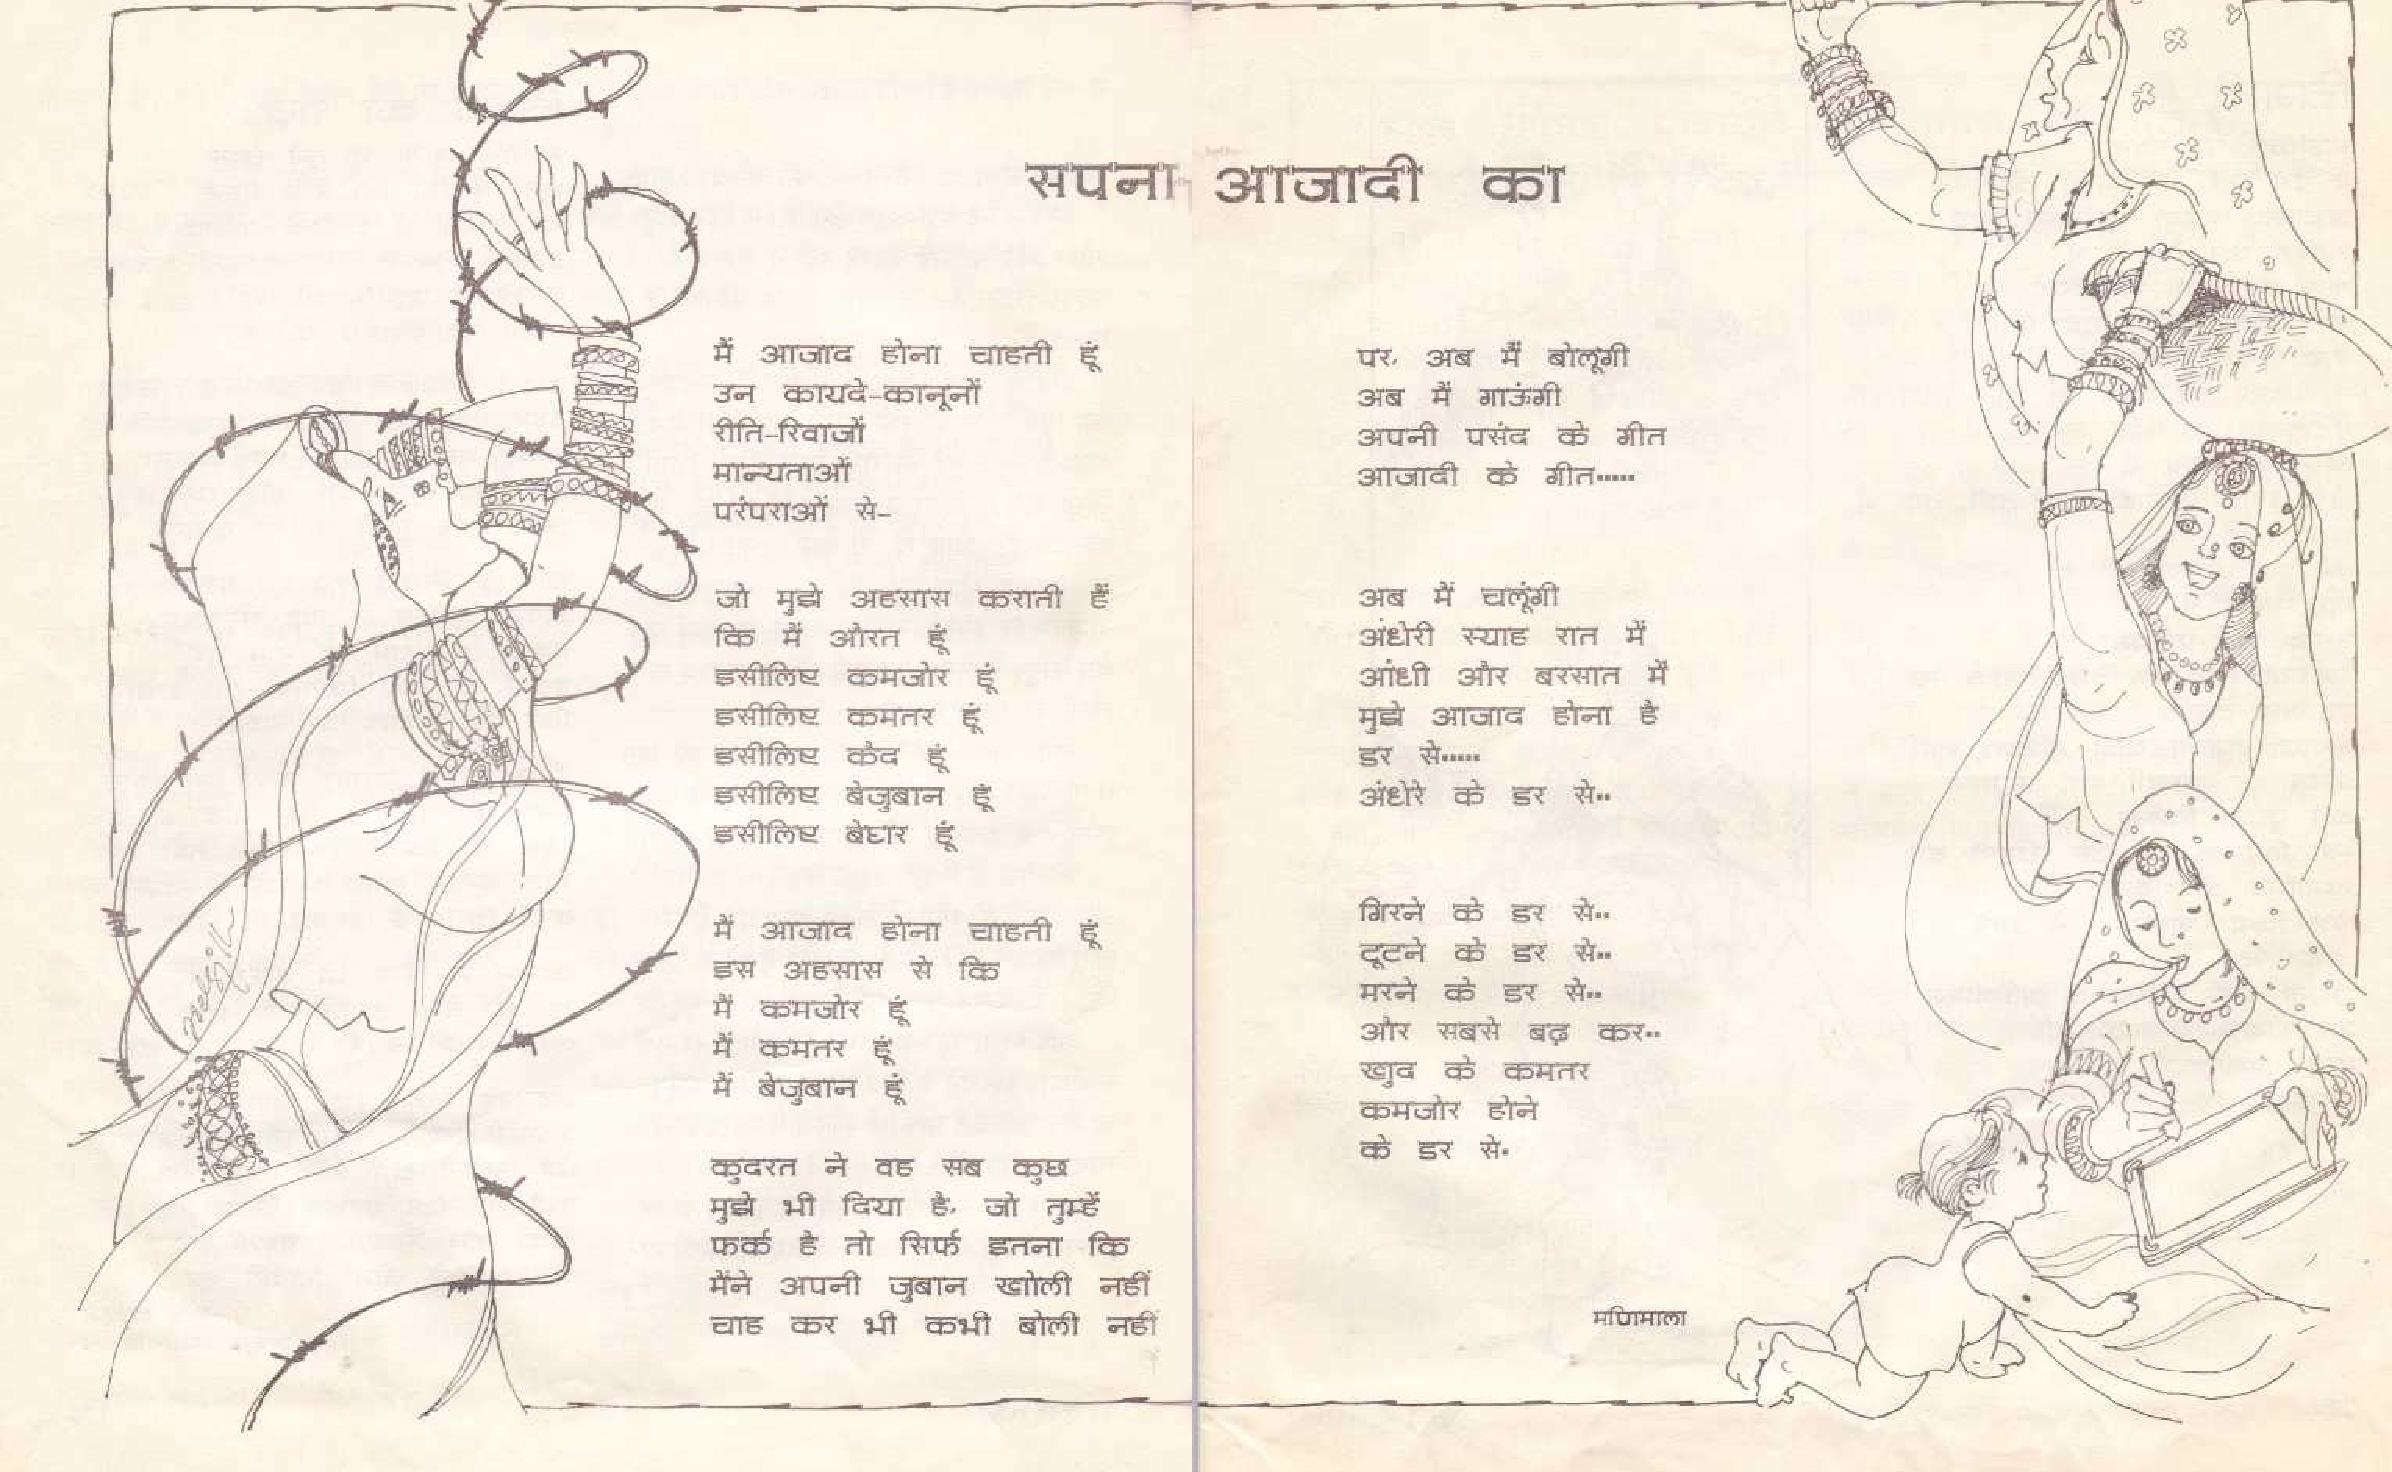 सपना आजादी का
मैं आजाद होना चाहती हूं
उन कायदे-कानूनों
रीति-रिवाजों
मान्यताओं
परंपराओं से-
जो मुझे अहसास कराती हैं
कि मैं औरत हूं
इसीलिए कमजोर हूं
इसीलिए कमतर हूं
इसीलिए कैद हूं
इसीलिए बेजुबान हूं
इसीलिए बेघर हूं
मैं आजाद होना चाहती हूं
इस अहसास से कि
मैं कमजोर हूं
मैं कमतर हूं
मैं बेजुबान हूं
कुदरत ने वह सब कुछ
मुझे भी दिया है, जो तुम्हें
फर्क है तो सिर्फ इतना कि
मैंने अपनी जुबान खोली नहीं
चाह कर भी कभी बोली नहीं
पर, अब मैं बोलूंगी
अब मैं गाऊंगी
अपनी पसंद के गीत
आजादी के गीत.....
अब मैं चलूंगी
अंधेरी स्याह रात में
आंधी और बरसात में
मुझे आजाद होना है
डर से.....
अंधेरे के डर से..
गिरने के डर से..
टूटने के डर से..
मरने के डर से..
और सबसे बढ़ कर..
खुद के कमतर
कमजोर होने
के डर से.
मणिमाला